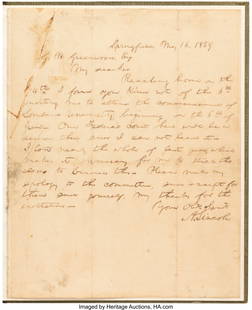 Springfield, May 16, 1859
J. M. Greenwood Esq
My dear Sir
Reaching home on the
14th I found your kind note of the 5th
inviting me to attend the commencement of
Lombard University beginning on the 6th of
June. Our Federal court here will be in
session then, and I can not leave it.
I lost nearly the whole of last year, which
makes it necessary for me to stick the
closer to business this. Please make my
apology to the committee and accept for
them and yourself my thanks for the
invitation.
Yours Obt Servt
A. Lincoln
Imaged by Heritage Auctions, HA.com